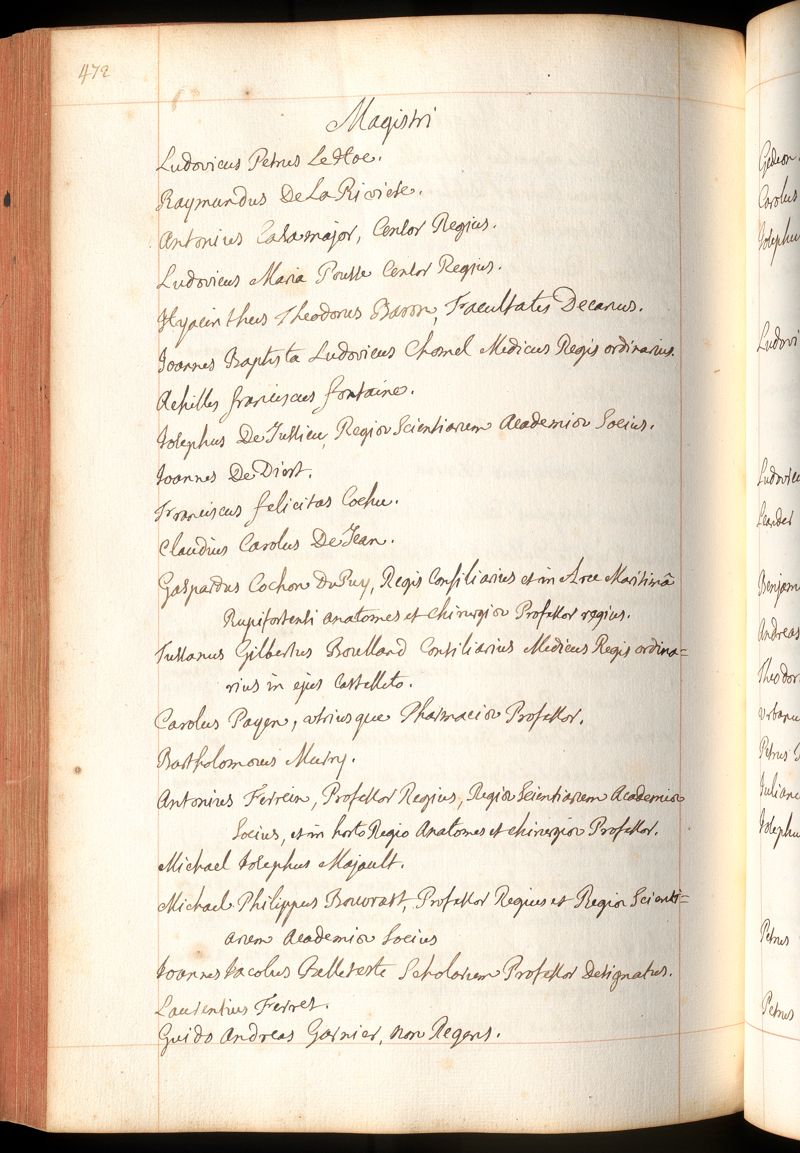 472
Magistri
Ludovicus Petrus LeHoc.
Raymundus De La Riviere.
Antonius Casamajor, Censor Regius.
Ludovicus Maria Pousse Censor Regius.
Hyacinthus Theodorus Baron, Facultatis Decanus.
Ioannes Baptista Ludovicus Chomel Medicus Regis ordinarius.
Achilles franciscus fontaine.
Iosephus De Jussieu, Regiæ Scientiarum Academiæ Socius.
Ioannes De Diest.
Franciscus felicitas Cochu.
Claudius Carolus De Jean.
Gaspardus Cochon DuPuy, Regis Consiliarius et in Arce Maritimâ
Rupifortensi anatomes et chirurgiæ Professor regius.
Jussanus Gilbertus Boulland Consiliarius Medicus Regis ordina=
rius in ejus Castelleto.
Carolus Payen, utriusque Pharmaciæ Professor.
Bartholomæus Murry.
Antonius Ferrein, Professor Regius, Regiæ Scientiarum Academiæ
Socius, et in horto Regio Anatomes et chirurgiæ Professor.
Michael Iosephus Majault.
Michael Philippus Bouvart, Professor Regius et Regiæ Scienti=
arum Academiæ Socius
Ioannes Iacobus Belleteste Scholarum Professor Designatus.
Laurentius Ferret.
Guido Andreas Garnier, non Regens.
Gedeon
Carolus
Iosephu
Ludovi
Ludovicu
Leander
Benjam
Andreas
Theodor
Urbanu
Petrus
Julianu
Iosephu
Petrus
Petrus